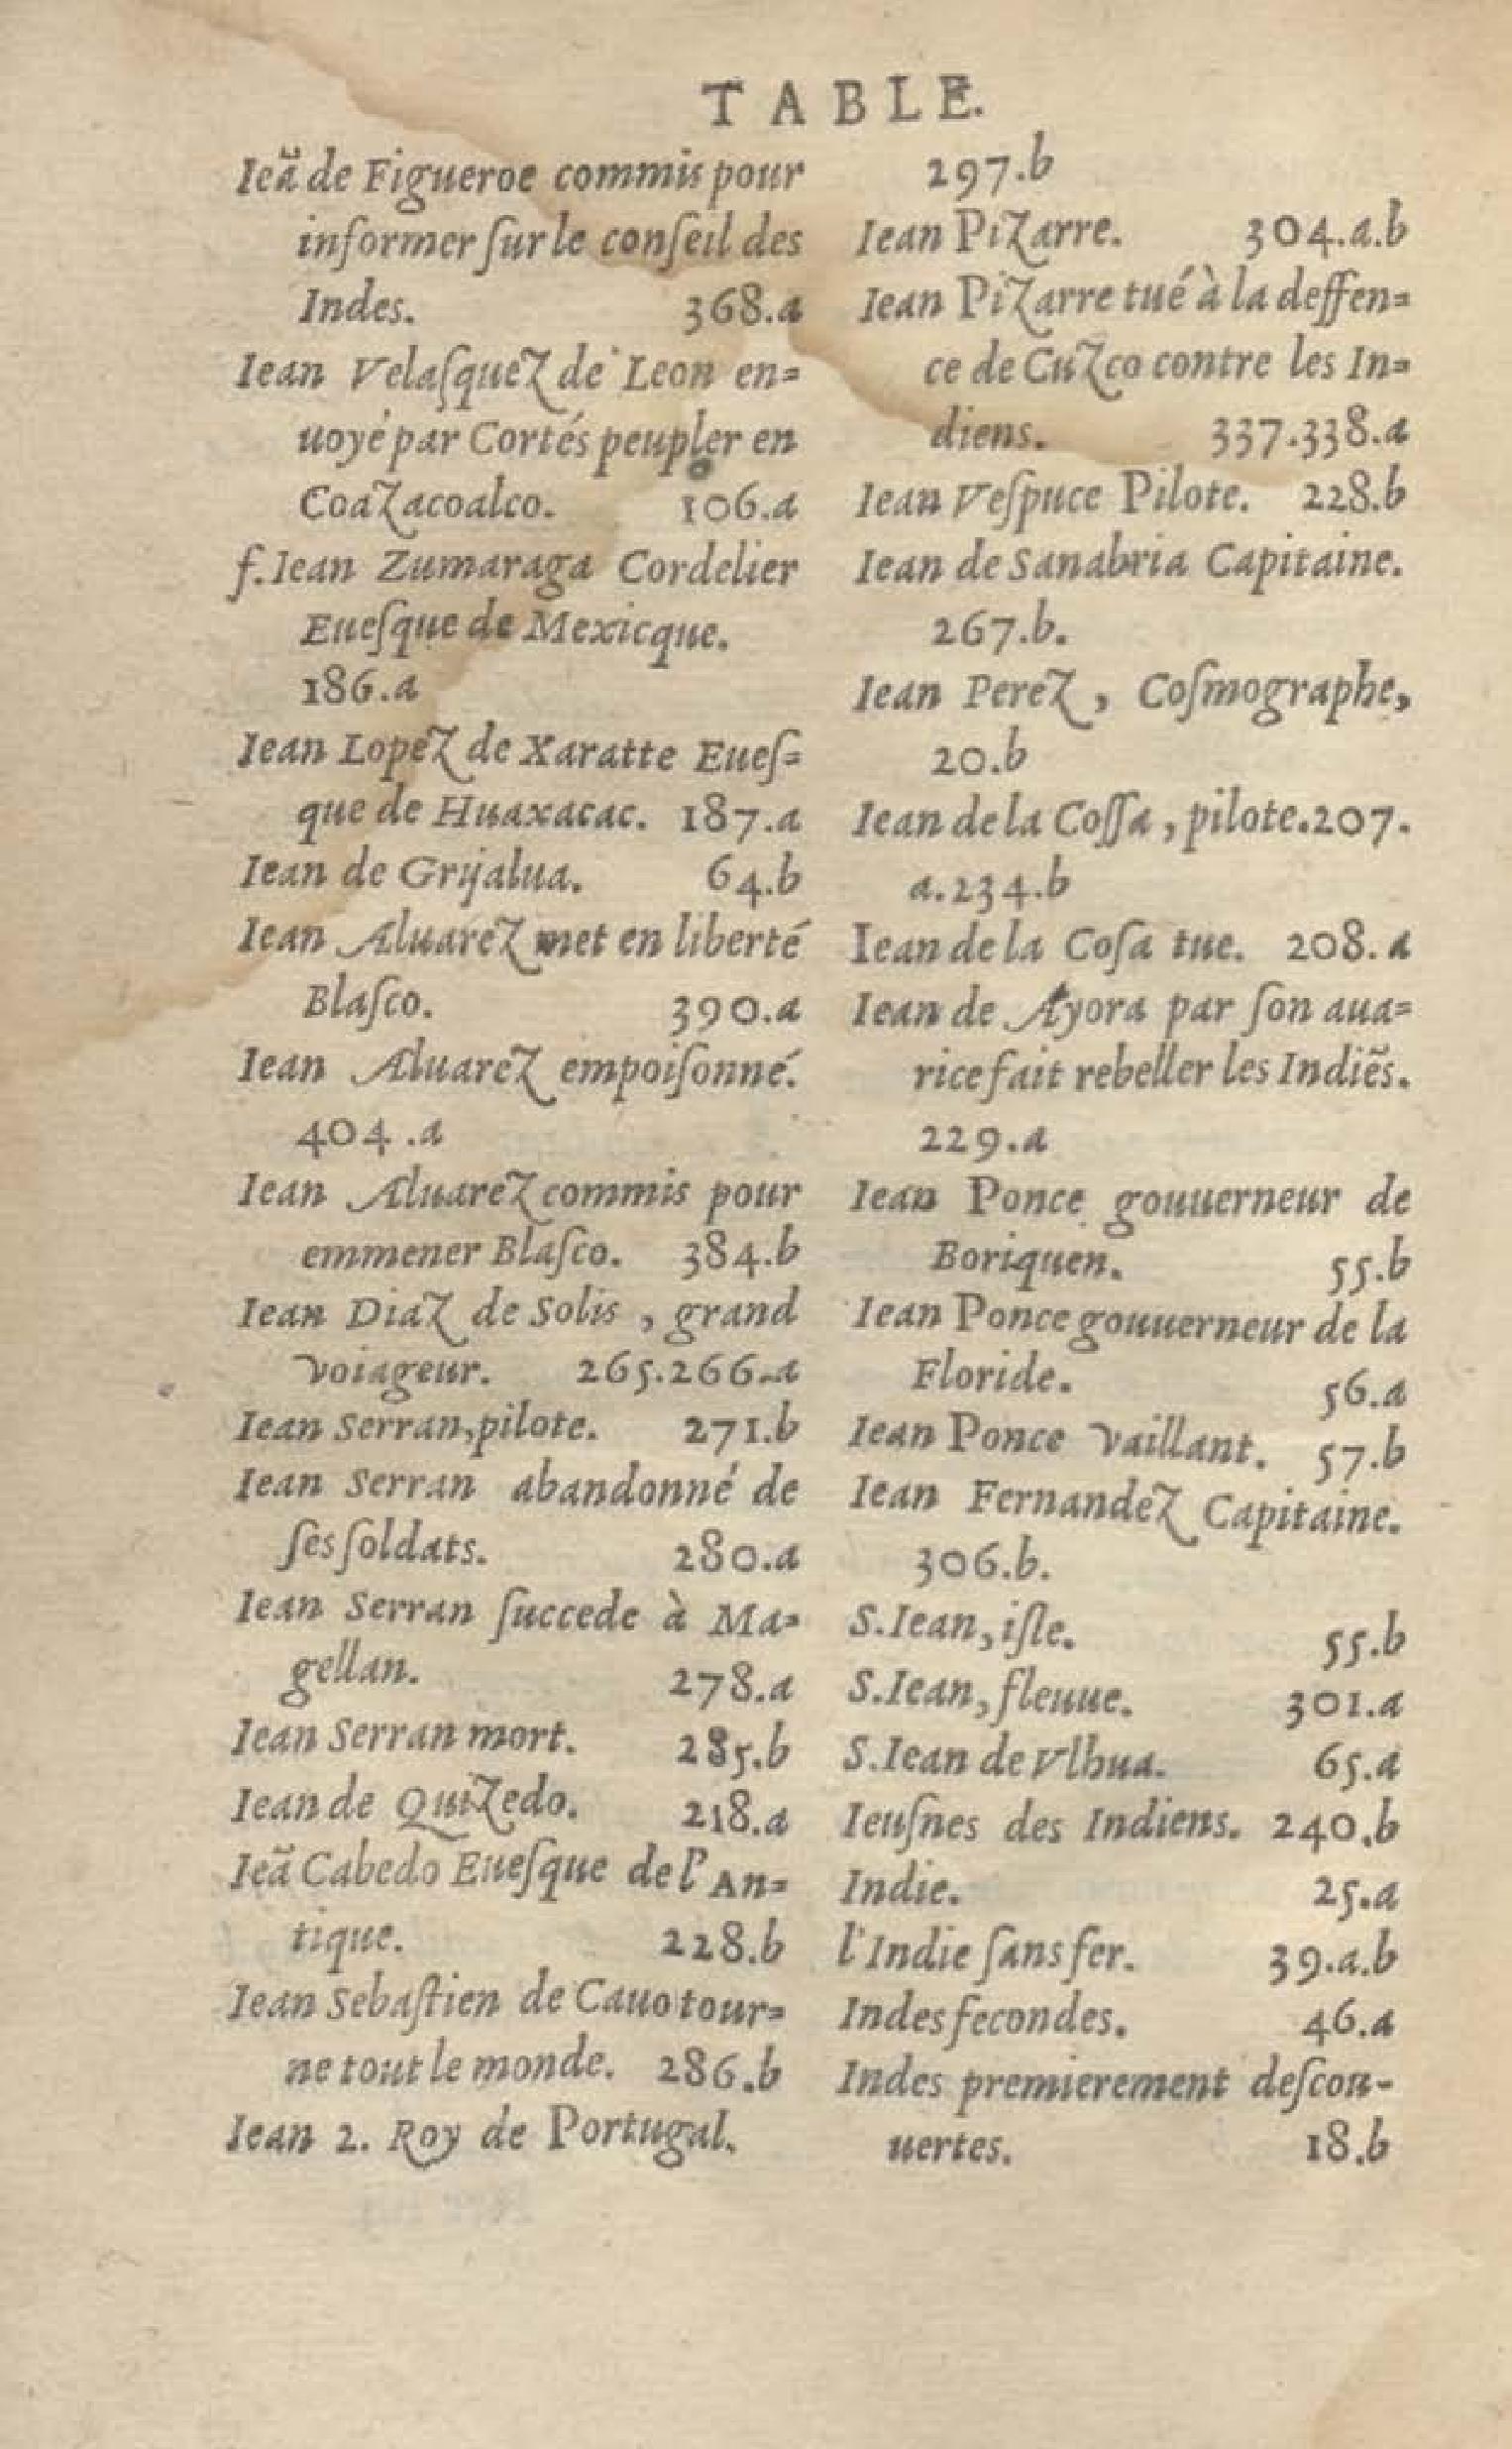 TABLE.
Ieã de Figueroe commis pour
informer ſur le conſeil des
Indes. 368.a
Iean Velaſquez de Leon en=
uoyé par Cortés peupler en
Coazacoalco. 106.a
f. Iean Zumaraga Cordelier
Eueſque de Mexicque.
186.a
Iean Lopez de Xaratte Eueſ=
que de Huaxacac. 187.a
Iean de Grijalua. 64.b
Iean Aluarez met en liberté
Blaſco. 390.a
Iean Aluarez empoiſonné.
404.a
Iean Aluarez commis pour
emmener Blaſco. 384.b
Iean Diaz de Solis, grand
voiageur. 265.266.a
Iean Serran, pilote. 271.b
Iean Serran abandonné de
ſes ſoldats. 280.a
Iean Serran ſuccede à Ma=
gellan. 278.a
Iean Serran mort. 285.b
Iean de Quizedo. 218.a
Ieã Cabedo Eueſque de l'An=
tique. 228.b
Iean Sebaſtien de Cauo tour=
ne tout le monde. 286.b
Iean 2. Roy de Portugal.
297.b
Iean Pizarre. 304.a.b
Iean Pizarre tué à la deffen=
ce de Cuzco contre les In=
diens. 337.338.a
Iean Veſpuce Pilote. 228.b
Iean de Sanabria Capitaine.
267.b.
Iean Perez, Coſmographe,
20.b
Iean de la Coſſa, pilote. 207.
a.234.b
Iean de la Coſa tue. 208.a
Iean de Ayora par ſon aua=
rice fait rebeller les Indiẽs.
229.a
Iean Ponce gouuerneur de
Boriquen. 55.b
Iean Ponce gouuerneur de la
Floride. 56.a
Iean Ponce vaillant. 57.b
Iean Fernandez Capitaine.
306.b.
S. Iean, iſle. 55.b
S. Iean, fleuue. 301.a
S. Iean de Vlhua. 65.a
Ieuſnes des Indiens. 240.b
Indie. 25.a
l'Indie ſans fer. 39.a.b
Indes fecondes. 46.a
Indes premierement deſcou-
uertes. 18.b